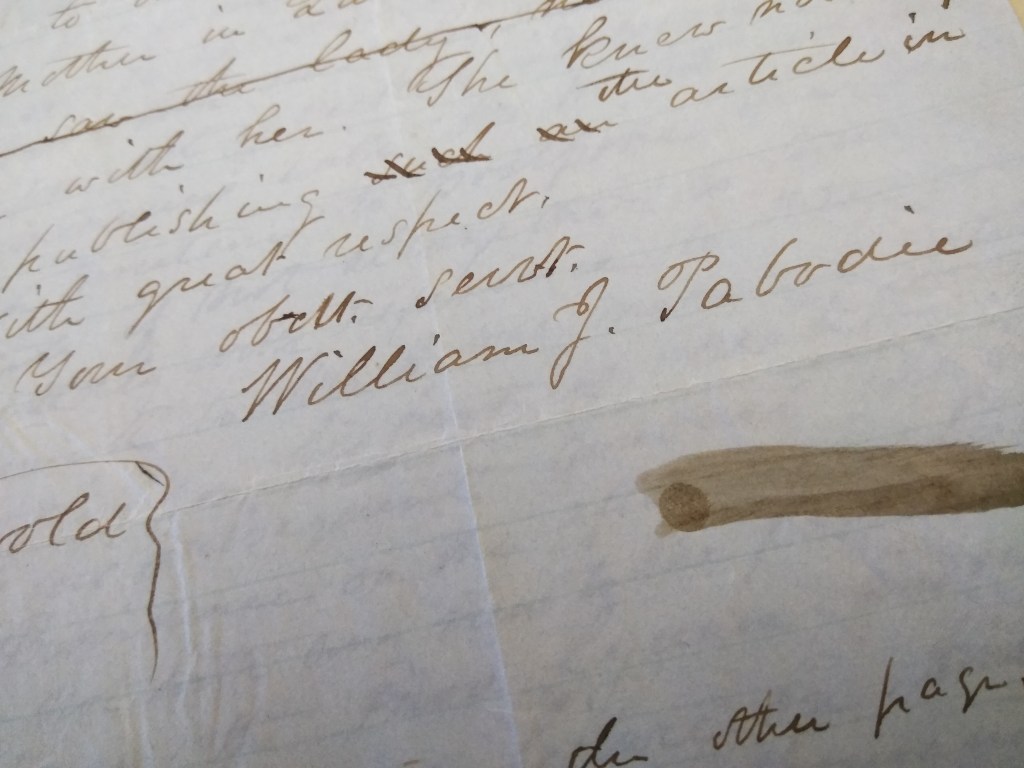 to
mother in
saw the lady,
with her. She knew
the
publishing such an article in
with great respect.
Your obdt. servt.
William J. Pabodie
old
On other page.